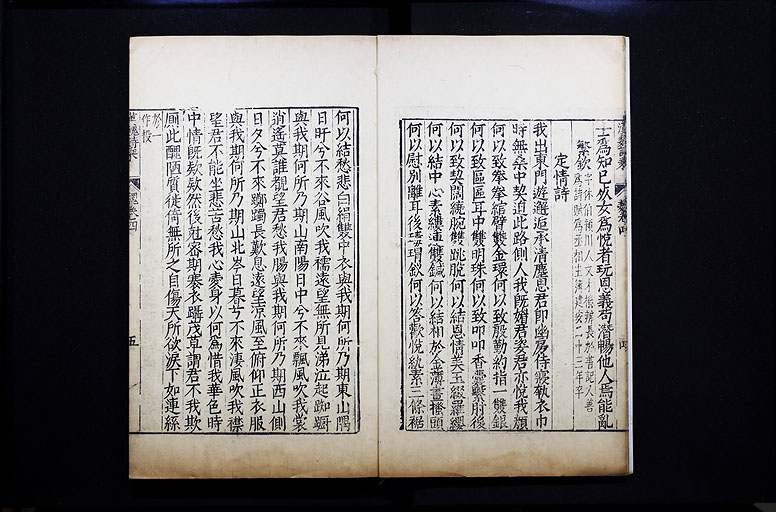 士爲知己死女爲悅者玩恩義苟潛暢他人焉能亂
繁欽
字休伯潁川人文才機辯長於書記又善
爲詩賦爲丞相主簿建安二十三年卒
定情詩
我出東門遊邂逅承清塵思君即幽房侍寢執衣巾
時無桑中契迫此路側人我既媚君姿君亦悅我顏
何以致拳拳綰臂雙金環何以致殷勤約指一雙銀
何以致區區耳中雙明珠何以致叩叩香囊繫肘後
何以致契闊繞腕雙跳脫何以結恩情美玉綴羅纓
何以結中心素縷連雙鍼何以結相於金薄畫搔頭
何以慰別離耳後瑇瑁釵何以答歡悅紈素三條裾
何以結愁悲白絹雙中衣與我期何所乃期東山隅
日旰兮不來谷風吹我襦遠望無所見涕泣起踟躕
與我期何所乃期山南陽日中兮不來飄風吹我裳
逍遙莫誰覩望君愁我腸與我期何所乃期西山側
日夕兮不來躑躅長歎息遠望涼風至俯仰正衣服
與我期何所乃期山北岑日暮兮不來淒風吹我襟
望君不能坐悲苦愁我心愛身以何爲惜我華色時
中情既款款然後剋密期褰衣躡茂草謂君不我欺
廁此醜陋質徙倚無所之自傷失所欲淚下如連絲
於一
作投
五